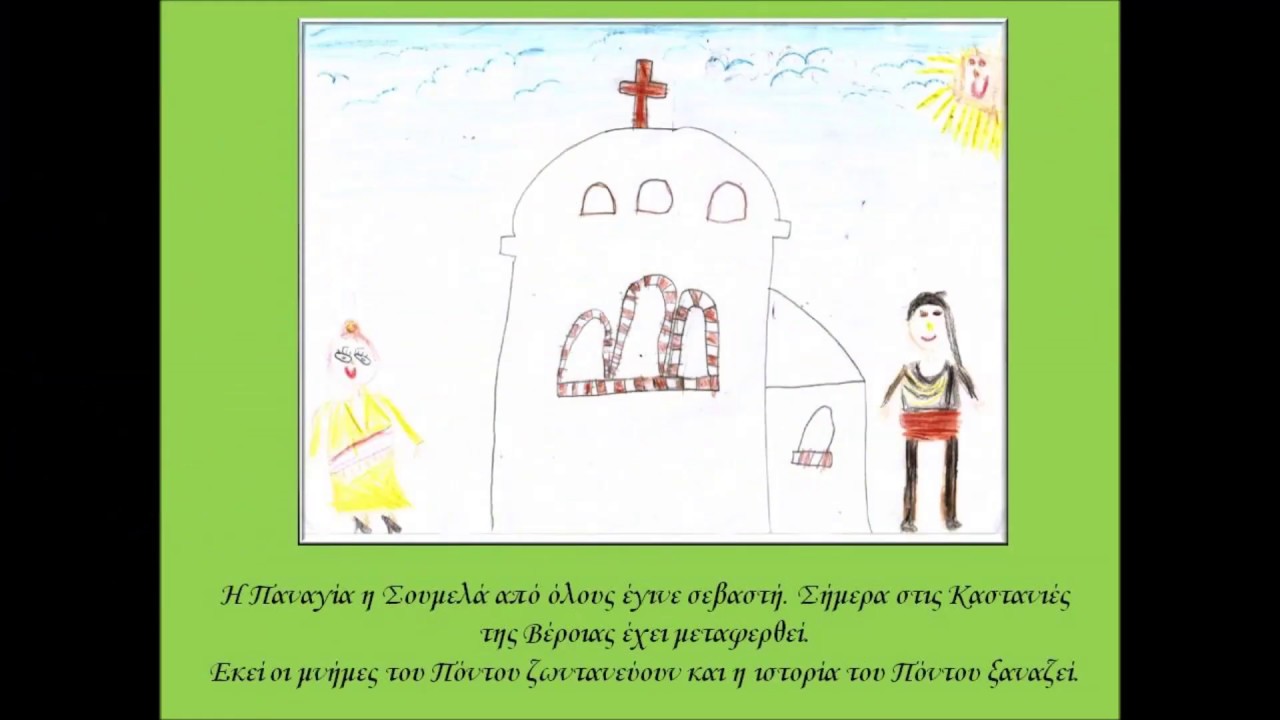 Η Παναγία η Σουμελά από όλους έγινε σεβαστή. Σήμερα στις Καστανιές
της Βέροιας έχει μεταφερθεί.
Εκεί οι μνήμες του Πόντου ζωντανεύουν και η ιστορία του Πόντου ξαναζεί.